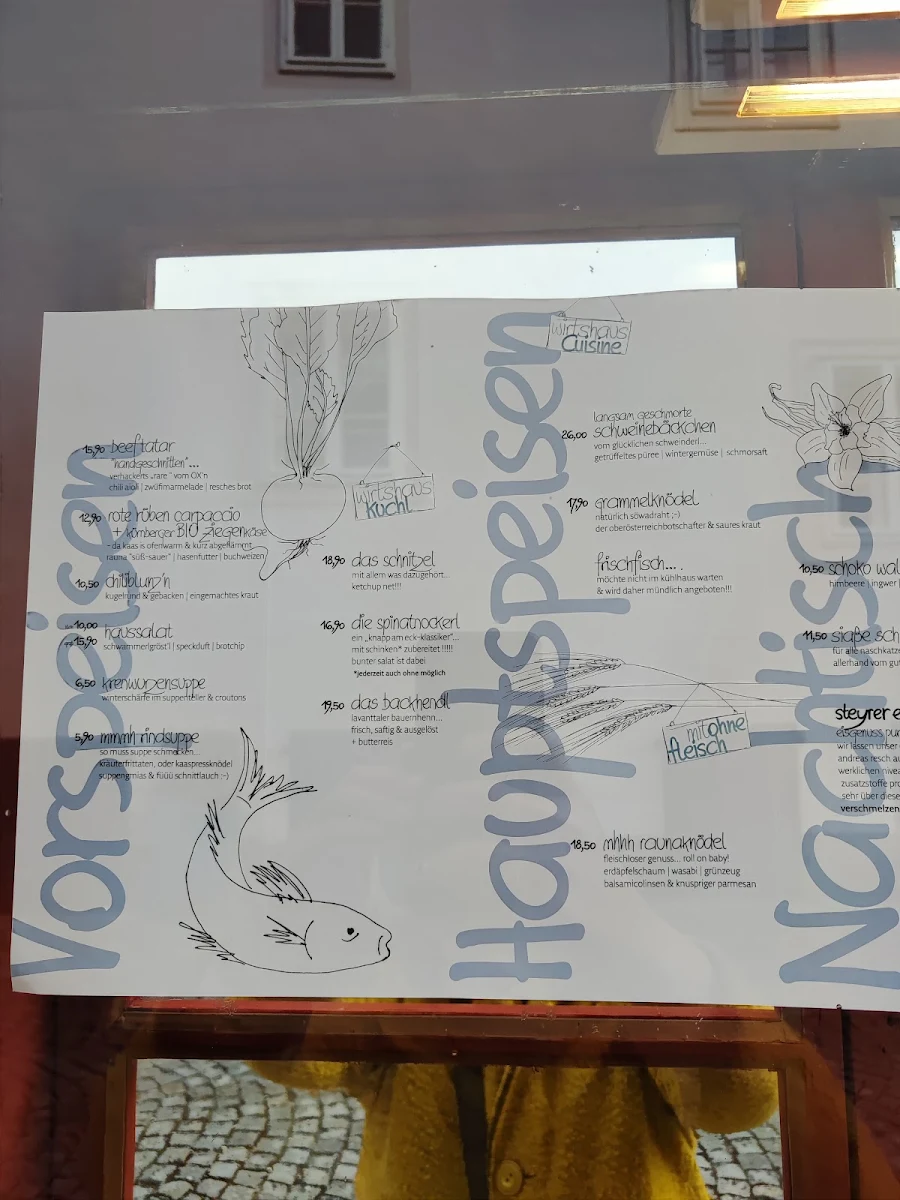 Vorspeisen
15,90 beeftatar
"handgeschnitten"...
verhackerts „rare" vom OX'n
chili aioli | zwüfimarmelade | resches brot
12,90 rote rüben carpaccio
+ körnberger BIO Ziegenkäse
- da kaas is ofenwarm & kurz abgeflämmt
rauna "süß-sauer" | hasenfutter | buchweizen
10,50 chiliblunz'n
kugelrund & gebacken | eingemachtes kraut
10,00
15,90 haussalat
schwammerlgröst'l | speckduft | brotchip
6,50 krenwurzensuppe
winterschärfe im suppenteller & croutons
5,90 mmhh rindsuppe
so muss suppe schmecken...
kräuterfrittaten, oder kaaspressknödel
suppengmias & füüü schnittlauch ;-)
wirtshaus
kuchl
18,90 das schnitzel
mit allem was dazugehört...
ketchup net!!!
16,90 die spinatnockerl
ein „knapp am eck-klassiker"...
mit schinken* zubereitet !!!!!
bunter salat ist dabei
*jederzeit auch ohne möglich
19,50 das backhendl
lavanttaler bauernhenn...
frisch, saftig & ausgelöst
+ butterreis
Hauptspeisen
wirtshaus
Cuisine
langsam geschmorte
26,00 schweinebäckchen
vom glücklichen schweinderl...
getrüffeltes püree | wintergemüse | schmorsaft
17,90 grammelknödel
natürlich söwadraht ;-)
der oberösterreichbotschafter & saures kraut
frischfisch....
möchte nicht im kühlhaus warten
& wird daher mündlich angeboten!!!
mitohne
fleisch
18,50 mhhh raunaknödel
fleischloser genuss... roll on baby!
erdäpfelschaum | wasabi | grünzeug
balsamicolinsen & knuspriger parmesan
Nachtisch
10,50 schoko wal
himbeere | ingwer |
11,50 siaße sch
für alle naschkatze
allerhand vom gu
steyrer e
eisgenuss pur
wir lassen unser
andreas resch au
werklichen nivea
zusatzstoffe pro
sehr über diese
verschmelzen